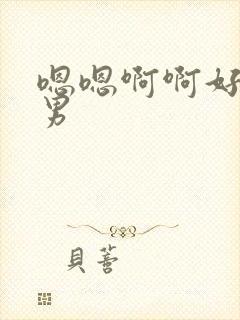 嗯嗯啊啊好
男
貝蕾